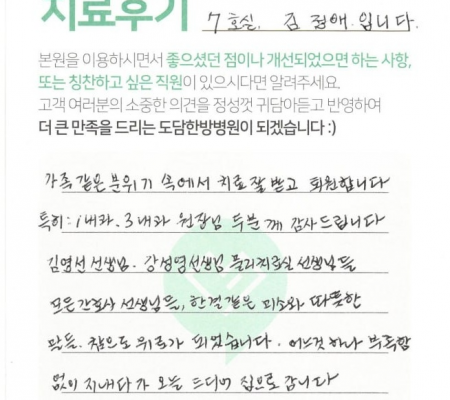 치료후기 7호실. 김 점애. 입니다.
본원을 이용하시면서 좋으셨던 점이나 개선되었으면 하는 사항,
또는 칭찬하고 싶은 직원이 있으시다면 알려주세요.
고객 여러분의 소중한 의견을 정성껏 귀담아듣고 반영하여
더 큰 만족을 드리는 도담한방병원이 되겠습니다 :)
가족같은 분위기 속에서 치료 잘 받고 퇴원합니다
특히: 1내과. 3내과 원장님 두분께 감사드립니다
김영선 선생님. 강성영선생님 물리치료실 선생님들
모든 간호사 선생님들, 한결같은 미소와 따뜻한
말들. 참으로 위로가 되었습니다. 어느것 하나 부족함
없이 지내다가 오늘 드디어 집으로 갑니다